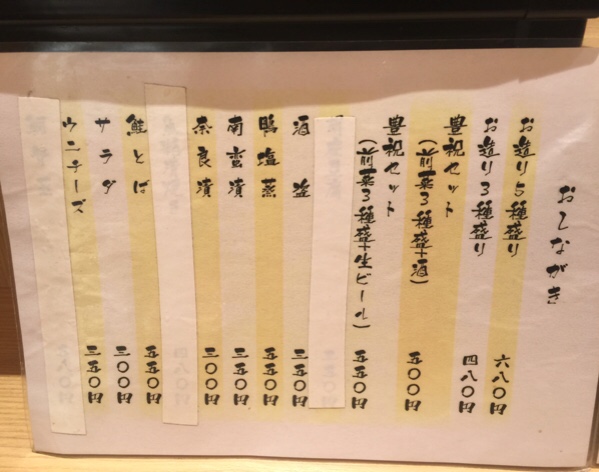 おしながき
お造り5種盛り 六八〇円
お造り3種盛り 四八〇円
豊祝セット
(前菜3種盛+酒) 五〇〇円
豊祝セット
(前菜3種盛+生ビール) 五五〇円
酒盗 三五〇円
鴨塩蒸 五五〇円
南蛮漬 三五〇円
奈良漬 三〇〇円
鮭とば 五五〇円
サラダ 三〇〇円
ウニチーズ 三五〇円